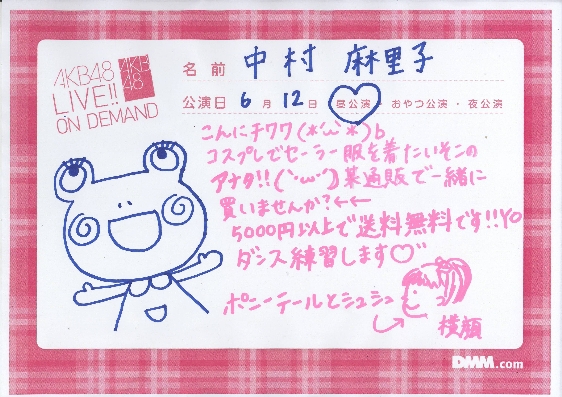 AKB48
LIVE!!
ON DEMAND
AKB
48
名前 中村 麻里子
公演日 6月12日 昼公演・おやつ公演・夜公演
こんにチワワ(*'ω'*)b
コスプレでセーラー服を着たいそこの
アナタ!!(`・ω・´)某通販で一緒に
買いませんか?←←
5000円以上で送料無料です!!YO
ダンス練習します♡
ポニーテールとシュシュ
横顔
DMM.com